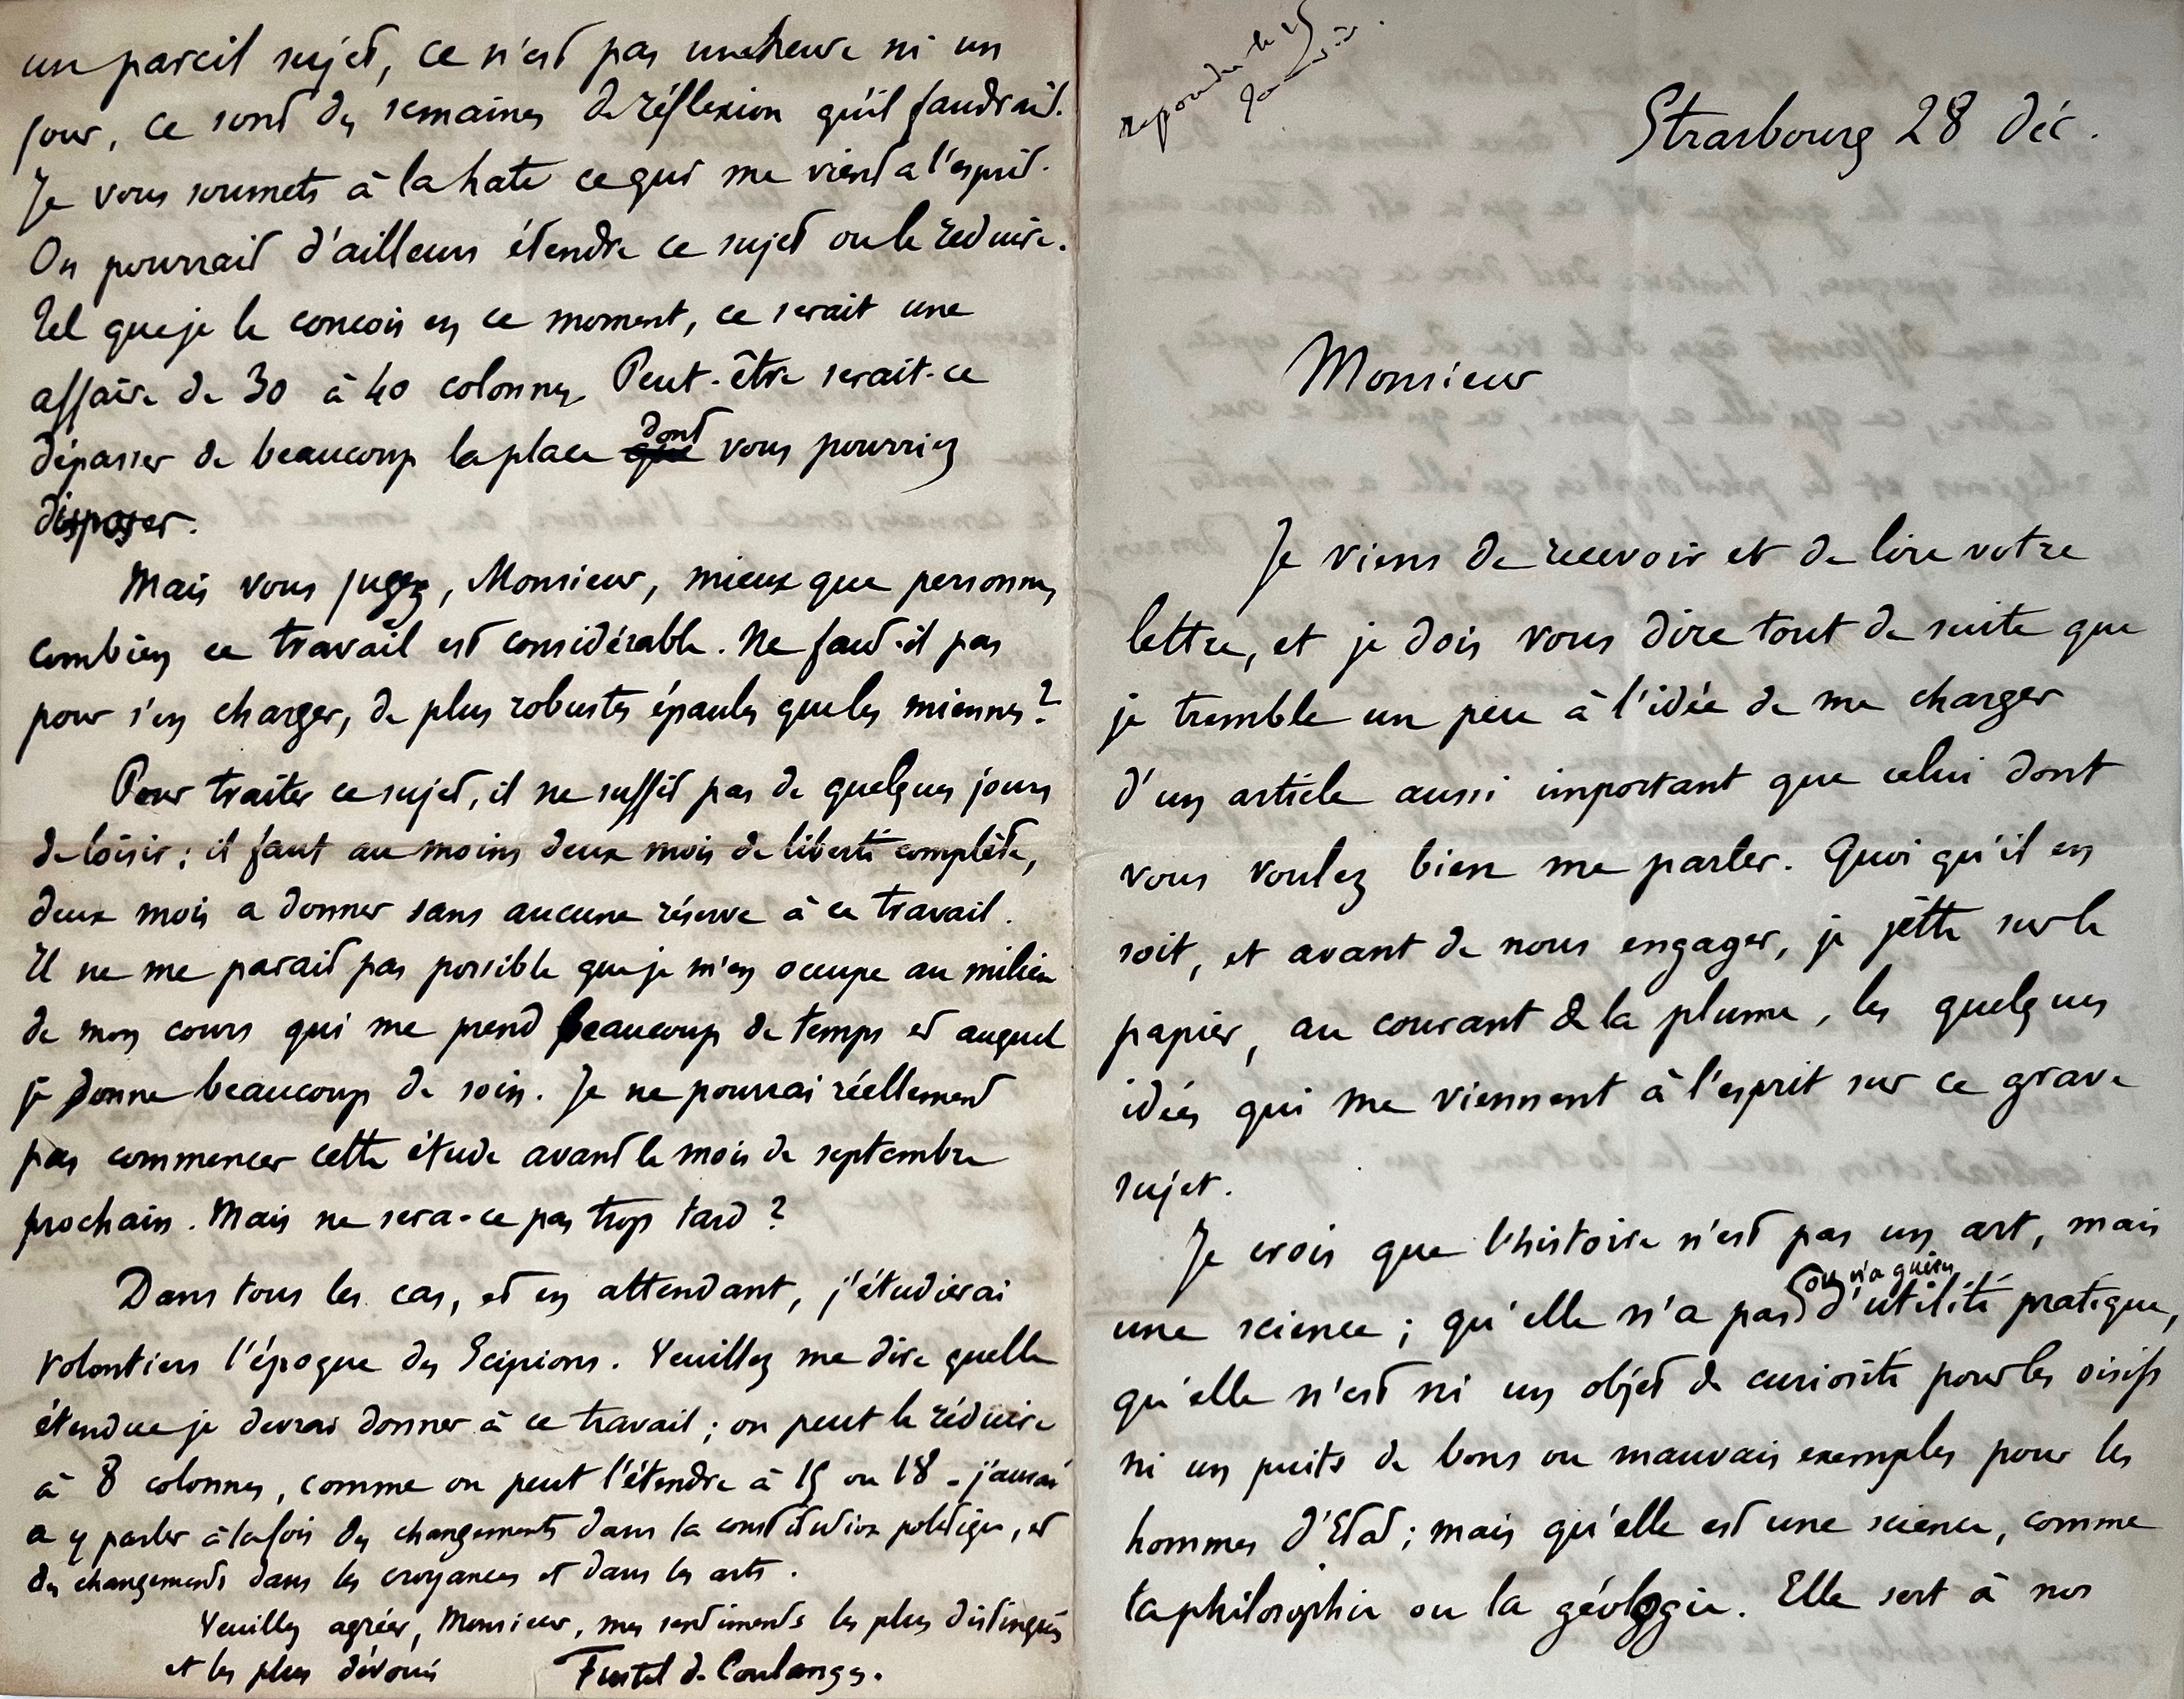 repondu le 15
Janvier.
Strasbourg 28 Déc.
Monsieur
Je viens de recevoir et de lire votre
lettre, et je dois vous dire tout de suite que
je tremble un peu à l'idée de me charger
d'un article aussi important que celui dont
vous voulez bien me parler. Quoi qu'il en
soit, et avant de nous engager, je jette sur le
papier, au courant de la plume, les quelques
idées qui me viennent à l'esprit sur ce grave
sujet.
Je crois que l'histoire n'est pas un art, mais
une science ; qu'elle n'a pas (ou n'a guères) d'utilité pratique,
qu'elle n'est ni un objet de curiosité pour les oisifs
ni un puits de bons ou mauvais exemples pour les
hommes d'Etat ; mais qu'elle est une science, comme
la philosophie ou la géologie. Elle sert à nos
un pareil sujet, ce n'est pas une heure ni un
jour, ce sont des semaines de réflexion qu'il faudrait.
Je vous soumets à la hate ce qui me vient a l'esprit.
On pourrait d'ailleurs étendre ce sujet ou le réduire.
Tel que je le concois en ce moment, ce serait une
affaire de 30 à 40 colonnes. Peut-être serait-ce
dépasser de beaucoup la place que dont vous pourriez
disposer.
Mais vous jugez, Monsieur, mieux que personne,
combien ce travail est considérable. Ne faut-il pas
pour s'en charger, de plus robustes épaules que les miennes ?
Pour traiter ce sujet, il ne suffit pas de quelques jours
de loisir ; il faut au moins deux mois de liberté complète,
deux mois a donner sans aucune réserve à ce travail.
Il ne me parait pas possible que je m'en occupe au milieu
de mon cours qui me prend beaucoup de temps et auquel
je donne beaucoup de soin. Je ne pourrai réellement
pas commencer cette étude avant le mois de septembre
prochain. Mais ne sera-ce pas trop tard ?
Dans tous les cas, et en attendant, j'étudierai
volontiers l'époque des Scipions. Veuillez me dire quelle
étendue je devrai donner à ce travail ; on peut le réduire
à 8 colonnes, comme on peut l'étendre à 15 ou 18 - j'aurai
a y parler à la fois des changements dans la constitution politique, et
des changements dans les croyances et dans les arts.
Veuillez agréer, Monsieur, mes sentiments les plus distingués
et les plus dévoués
Fustel de Coulanges.